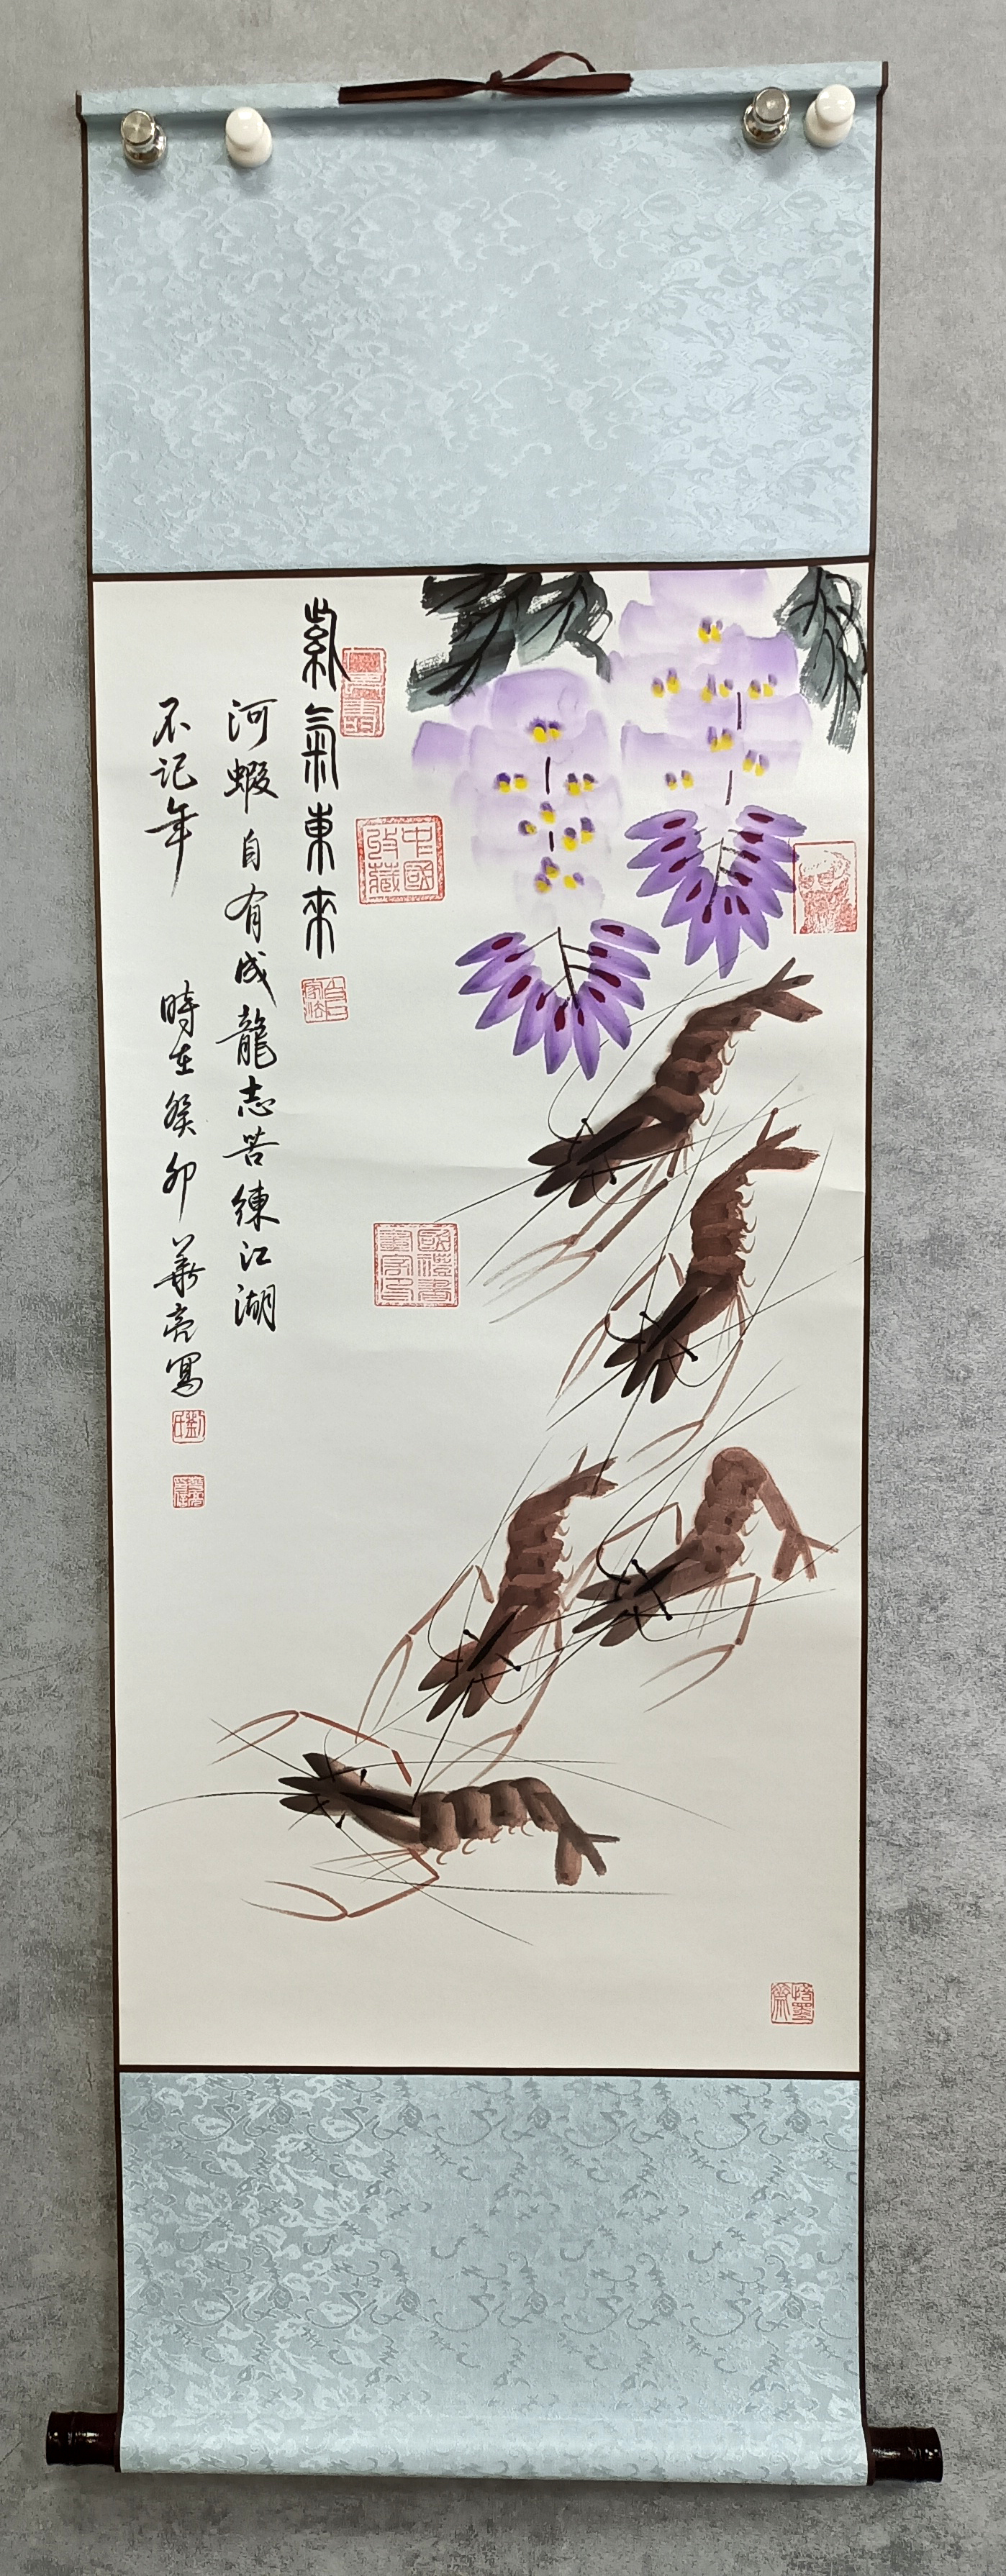 紫氣東來
河蝦自有成龍志苦練江湖
不记年 時在癸卯 華亮寫
中國收藏